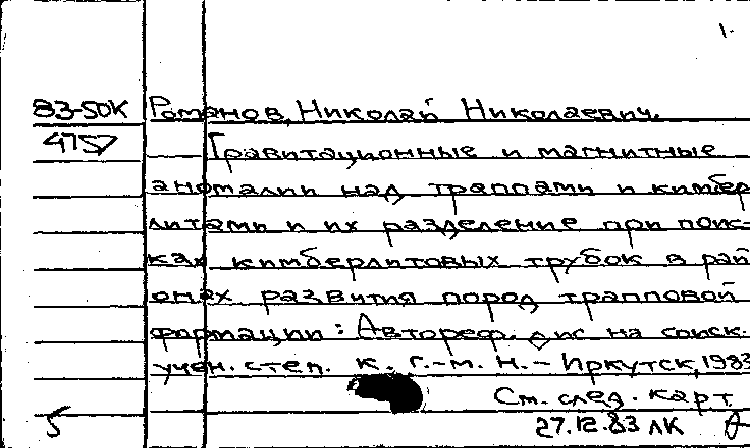 1.
83-50К Романов, Николай Николаевич.
4757 Гравитационные и магнитные
аномалии над траппами и кимбер
литами и их разделение при поис-
ках кимберлитовых трубок в рай
онах развития пород трапповой
формации: Автореф. дис на соиск.
учен. степ. к. г.-м. н. - Иркутск, 1983
См. след. карт
5 27.12.83 ЛК